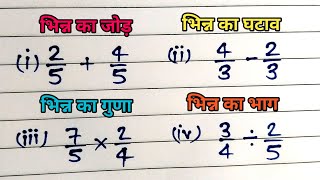 भिन्न का जोड़
(i) 2/5 + 4/5
भिन्न का घटाव
(ii) 4/3 - 2/3
भिन्न का गुणा
(iii) 7/5 × 2/4
भिन्न का भाग
(iv) 3/4 ÷ 2/5